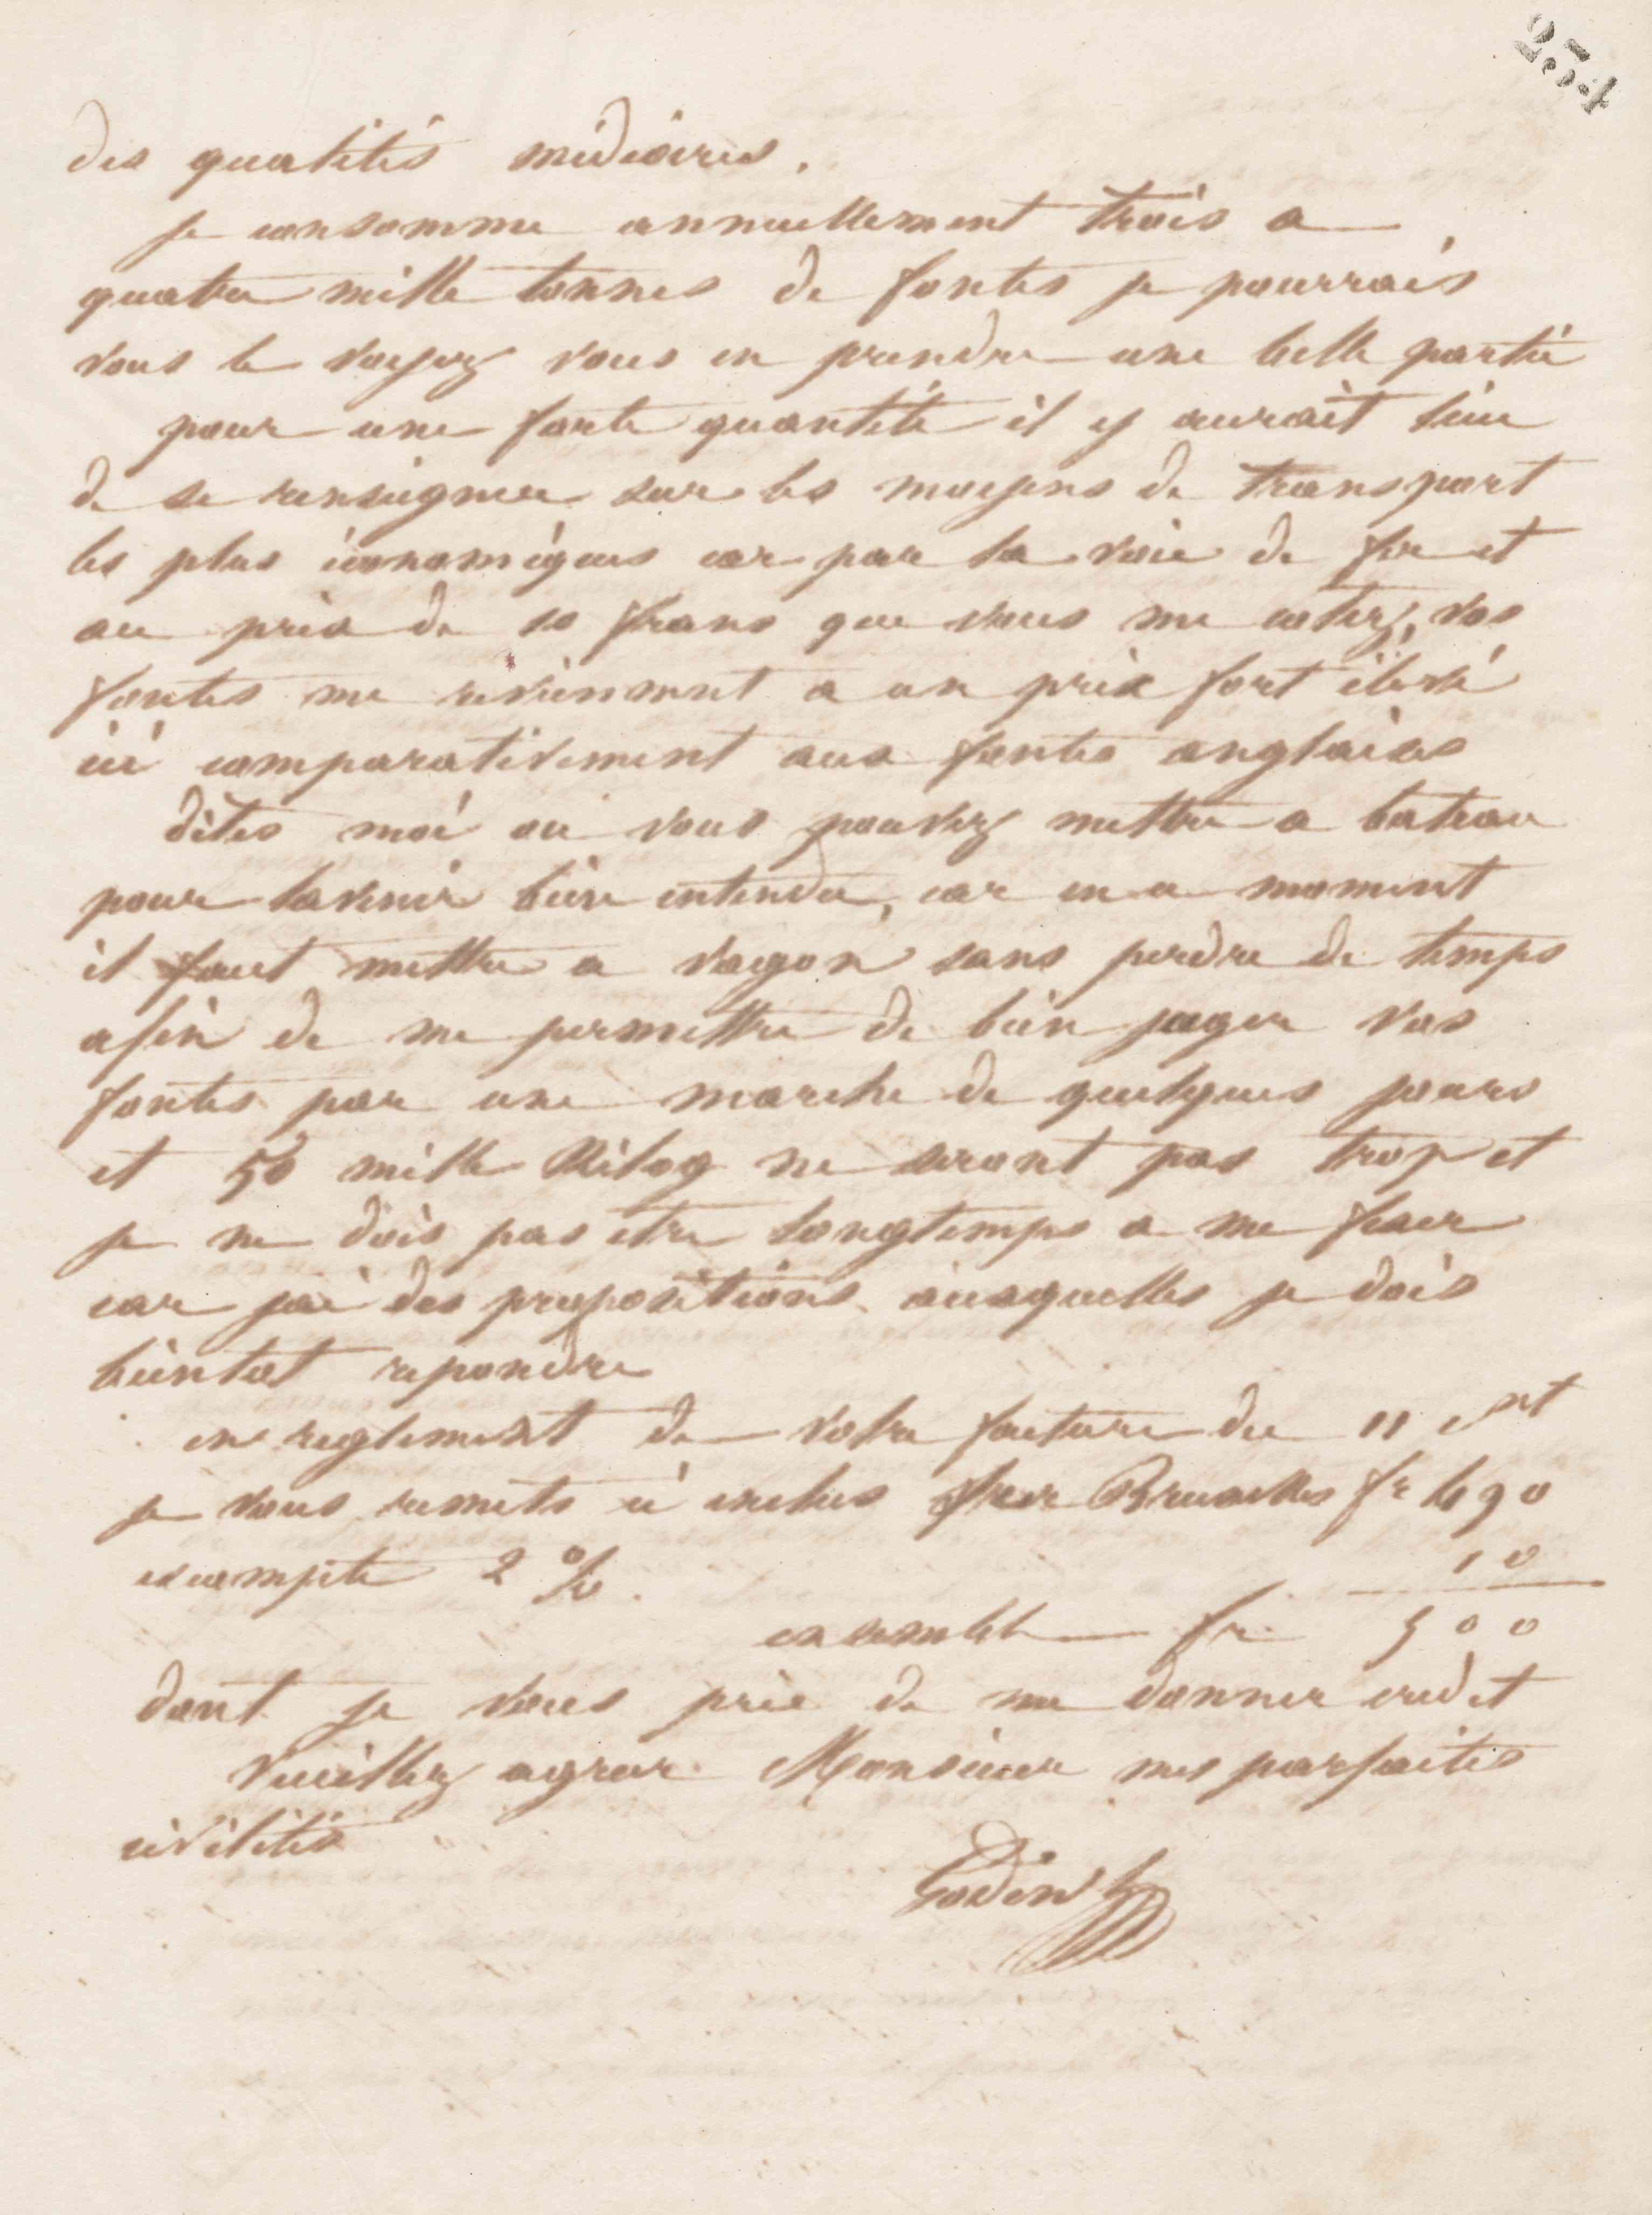 des qualités médiocres.
je consomme annuellement trois a
quatre mille tonnes de fontes je pourrais
vous le voyez vous en prendre une belle partie
pour une forte quantité il y aurait lieu
de se renseigner sur les moyens de transport
les plus économiques car par la voie de fer et
au prix de 10 francs que vous me cotez, vos
fontes me reviennent a un prix fort élevé
ici comparativement aux fontes anglaises
dites moi ou vous pouvez mettre a bateau
pour lavenir bien entendu, car en ce moment
il faut mettre a vagon sans perdre de temps
afin de me permettre de bien juger vos
fontes par une marche de quelques jours
et 50 mille Kilog ne seront pas trop et
je ne dois pas etre longtemps a me fixer
car jai des propositions auxquelles je dois
bientot repondre
en reglement de votre facture du 11 cnt
je vous remets ci inclus sur Bruxelles fr 490
escompte 2 % 10
ensemble fr 500
dont je vous prie de me donner credit
Veuillez agreer Monsieur mes parfaites
civilités
Godin